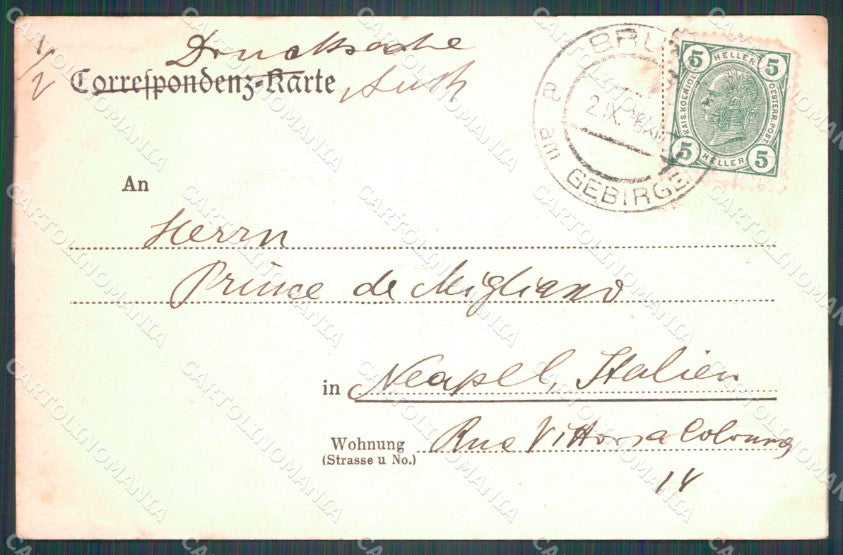 1/2
Drucksache
Correspondenz-Karte
BRU
a
am GEBIRGE
2.IX.
5 HELLER 5
KAIS. KOENIGL. OESTERR. POST
5 HELLER 5
An
Herrn
Prince de Migliano
in Neapel, Italien
Wohnung Rue Vittoria Colonna
(Strasse u No.)
14
CARTOLINOMANIA